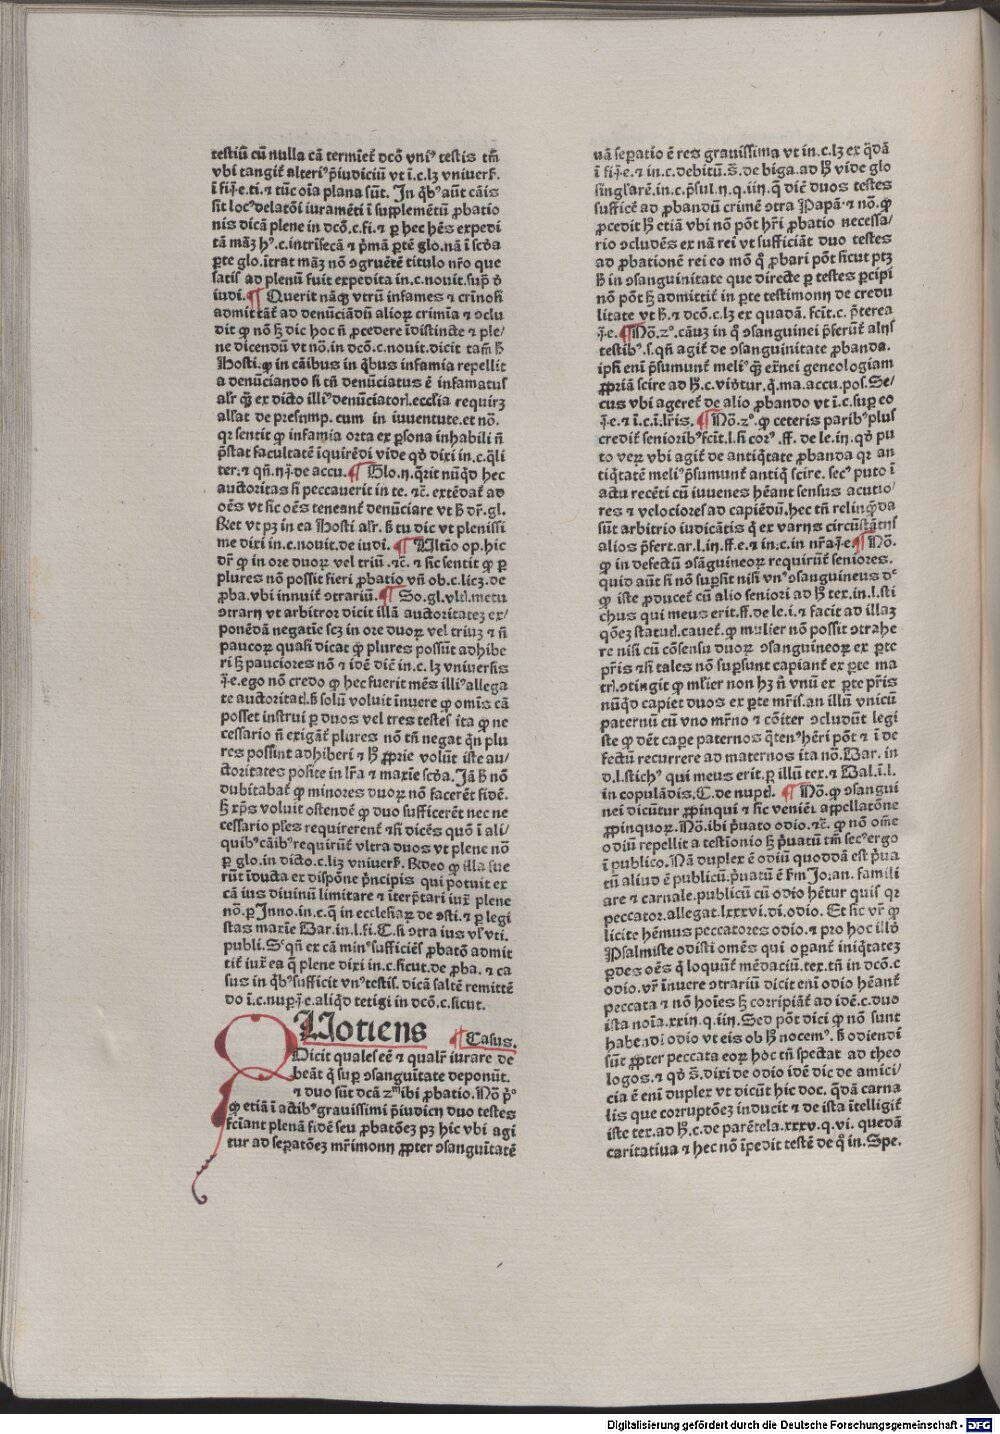 testiū cū nulla cā termīet᷑ dcō vniꝰ testis tm̄
vbi tangit᷑ alteriꝰ p̄iudiciū vt ī.c.lꝫ vniuers̄.
ī fi.j̄.e.ti.⁊ tūc oīa plana sūt. In q̄bꝰ aūt cāis
sit locꝰ delatōi iuramēti ī supplemētū ꝓbatio
nis dicā plene in dcō.c.fi.⁊ ꝑ hec hēs expedi
tā māꝫ hꝰ.c.intrīsecā ⁊ p̄mā ꝑtē glo.nā ī scd̄a
ꝑte glo.ītrat māꝫ nō ↄgruētē titulo nr̄o que
satis ad plenū fuit expedita in.c.nouit.sup̄ d̄
iudi.¶ Querit nāqꝫ vtrū infames ⁊ crīnosi
admittāt᷑ ad denūciādū alioꝝ crimīa ⁊ ↄclu
dit ꝙ nō sꝫ dic hoc n̄ ꝓcedere īdistincte ⁊ ple/
ne dicendū vt nō.in dcō.c.nouit.dicit tam̄ h̄
Hosti.ꝙ in cāibus in q̄bus infamia repellit
a denūciando si tn̄ denūciatus ē infamatus
alr̄ qꝫ ex dicto illiꝰ denūciatorꝭ.ecclīa requirꝫ
allat de presump. cum in iuuentute.et nō.
qꝛ sentit ꝙ infamia orta ex ꝑsona inhabili n̄
p̄stat facultatē īquirēdi vide qd̄ dixi in.c.q̄li
ter.⁊ qn̄.ij.j̄.de accu.¶ Glo.ij.q̄rit nūqd̄ hec
auctoritas si peccauerit in te. ⁊c̄. extēdat᷑ ad
oēs vt sic oēs teneant᷑ denūciare vt h̄ dr̄.gl.
Ket vt pꝫ in ea Hosti alr̄. h̄ tu dic vt plenissi
me dixi in.c.nouit.de iudi. ¶ Vltīo op.hic
dr̄ ꝙ in ore duoꝝ vel triū .⁊c̄. ⁊ sic sentit ꝙ ꝑ
plures nō possit fieri ꝓbatio vn̄ ob.c.licꝫ.de
ꝓba.vbi innuit᷑ ↄtrariū.¶ So.gl.vltꝭ.metu
ↄtrarij vt arbitroꝛ dicit illā auctoritateꝫ ex/
ponēdā negatīe scꝫ in ore duoꝝ vel triuꝫ ⁊ n̄
paucoꝝ quasi dicat ꝙ plures possūt adhibe
ri sꝫ pauciores nō ⁊ idē diē in.c.lꝫ vniuersis
j̄.e.ego nō credo ꝙ hec fuerit mēs illiꝰ allega
te auctoritatꝭ.h̄ solū voluit īnuere ꝙ omīs cā
posset instrui ꝑ duos vel tres testes ita ꝙ ne
cessario n̄ exigāt᷑ plures nō tn̄ negat qn̄ plu
res possint adhiberi ⁊ hꝫ ꝓprie volūt iste au/
ctoritates posite in lr̄a ⁊ maxīe scd̄a. Jā h̄ nō
dubitabat᷑ ꝙ minores duoꝝ nō facerēt fidē.
sꝫ xp̄s voluit ostendē ꝙ duo sufficerēt nec ne
cessario pl̄es requirerent᷑ ⁊ si dicēs quō ī ali/
quibꝰ cāibꝰ requirūt᷑ vltra duos vt plene nō
ꝑ glo.in dicto.c.licꝫ vniuers̄. Rīdeo ꝙ illa fue
rūt īducta ex dispōne p̄ncipis qui potuit ex
cā ius diuinū limitare ⁊ īterp̄tari iux̄ plene
nō.ꝑ Inno.in.c.q̄ in ecclesiaꝝ de ↄsti.⁊ ꝑ legi
stas maxīe Bar.in.l.fi.C.si ↄtra ius vl̓ vti.
publi. Sꝫ qn̄ ex cā minꝰ sufficiēs ꝓbatō admit
tit᷑ iux̄ ea q̄ plene dixi in.c.sicut.de ꝓba. ⁊ ca
sus in q̄bꝰ sufficit vnꝰ testis. dicā saltē remittē
do ī.c.nuꝑ.j̄.e.aliqd̄ tetigi in dcō.c.sicut.
QUotiens ¶ Casus.
Dicit quales eē ⁊ qualr̄ iurare de
beāt q̄ suꝑ ↄsanguītate deponūt.
⁊ duo sūt dcā zᵐ ibi ꝓbatio. Nō p̄°
ꝙ etiā ī actibꝰ grauissimi p̄iudicij duo testes
fciant plenā fidē seu ꝓbatōeꝫ pꝫ hic vbi agi
tur ad seꝑatōeꝫ mr̄imonij ꝓpter ↄsanguītatē
uā seꝑatio ē res grauissima vt in.c.lꝫ ex q̄dā
ī fi.j̄.e.⁊ in.c.debitū.s̄.de biga.ad hꝫ vide glo
singl̓arē.in.c.p̄sul.ij.q.iiij.q̄ diē duos testes
sufficē ad ꝓbandū crimē ↄtra Papā.⁊ nō.ꝙ
ꝓcedit hꝫ etiā vbi nō pōt hr̄i ꝓbatio necessa/
rio ↄcludēs ex nā rei vt sufficiāt duo testes
ad ꝓbationē rei eo mō q̄ ꝓbari pōt sicut ptꝫ
h̄ in ↄsanguinitate que directe ꝑ testes ꝑcipi
nō pōt sꝫ admittit᷑ in ꝑte testimonij de credu
litate vt h̄.⁊ dcō.c.lꝫ ex quadā. fcit.c. p̄terea
j̄.e.¶Nō.z°.cāuꝫ in q̄ ↄsanguinei p̄ferūt᷑ alijs
testibꝰ.s.qn̄ agit᷑ de ↄsanguinitate ꝓbanda.
ipsi eni p̄sumunt᷑ meliꝰ qꝫ ex̄nei geneologiam
ꝓpriā scire ad hꝫ.c.videtur.q̄.ma.accu.pos. Se/
cus vbi ageret᷑ de alio ꝓbando vt ī.c.suꝑ eo
j̄.e.⁊ ī.c.ī.lr̄is. ¶ Nō.z°.ꝙ ceteris paribꝰ plus
credit᷑ senioribꝰ fcit.l.si corꝰ .ff. de le.iij.qd̄ pu
to verꝝ vbi agit᷑ de antiq̄tate ꝓbanda qꝛ an
tiq̄tatē meliꝰ p̄sumunt᷑ antiq̄ scire. secꝰ puto ī
actu recēti cū iuuenes hēant sensus acutio/
res ⁊ velociores ad capiēdū.hec tn̄ relinq̄da
sūt arbitrio iudicātis q̄ ex varijs circūstātijs
alios p̄fert.ar.l.iij.ff.e.⁊ in.c.in nr̄a.j̄.e.¶ Nō.
ꝙ in defectū ↄsāguineoꝝ requirūt᷑ seniores.
quid aūt si nō suꝑsit nisi vnꝰ ↄsanguineus dᶜ
ꝙ iste ꝓducet᷑ cū alio seniori ad hꝫ tex.in.l.sti
chus qui meus erit.ff.de le.i.⁊ facit ad illaꝫ
qōeꝫ statutꝭ.cauet᷑.ꝙ mulier nō possit ↄtrahe
re nisi cū cōsensu duoꝝ ↄsanguineoꝝ ex ꝑte
pr̄is ⁊ si tales nō suꝑsunt capiant᷑ ex ꝑte ma
trꝭ.ↄtingit ꝙ mlier non hꝫ n̄ vnū ex ꝑte pr̄is
nūqd̄ capiet duos ex ꝑte mr̄is.an illū vnicū
paternū cū vno mr̄no ⁊ cōiter ↄcludūt legi
ste ꝙ dēt caꝑe paternos q̄tenꝰ hēri pōt ⁊ ī de
fectū recurrere ad maternos ita nō.Bar. in
d.l.stichꝰ qui meus erit.ꝑ illū tex.⁊ Bal.ī.l.
in copulādis.C.de nuptꝭ. ¶ Nō.ꝙ ↄsangui
nei dicūtur ꝓpinqui ⁊ sic veniēt appellatōne
ꝓpinquoꝝ. Nō.ibi p̄uato odio.⁊c̄. ꝙ nō om̄e
odiū repellit a testīonio sꝫ p̄uatū tm̄ secꝰ ergo
ī publico. Nā duplex ē odiū quoddā est p̄ua
tū aliud ē publicū.p̄uatū ē ẜm Jo.an. famili
are ⁊ carnale.publicū cū odio hētur quis qꝛ
peccator.allegat.lxxxvi.di.odio. Et sic vr̄ ꝙ
licite hēmus peccatores odio.⁊ pro hoc illd̄
Psalmiste odisti omēs qui oꝑant᷑ iniq̄tateꝫ
ꝑdes oēs q̄ loquūt᷑ mēdaciū.tex.tn̄ in dcō.c
odio.vr̄ īnuere ↄtrariū dicit eni odio hēant᷑
peccata ⁊ nō hoīes sꝫ corripiāt᷑ ad idē.c.duo
ista noīa.xxiij.q.iiij. Sed pōt dici ꝙ nō sunt
habendi odio vt eis ob hꝫ nocemꝰ. h̄ odiendi
sūt ꝓpter peccata eoꝝ hōc tn̄ spectat ad theo
logos.⁊ qd̄ s̄.dixi de odio idē dic de amici/
cia ē eni duplex vt dicūt hic doc. q̄dā carna
lis que corruptōeꝫ inducit ⁊ de ista ītelligit᷑
iste tex.ad hꝫ.c.de parētela.xxxv.q.vi. quedā
caritatiua ⁊ hec nō īpedit testē de q̄ in. Spe.
Digitalisierung gefördert durch die Deutsche Forschungsgemeinschaft - DFG